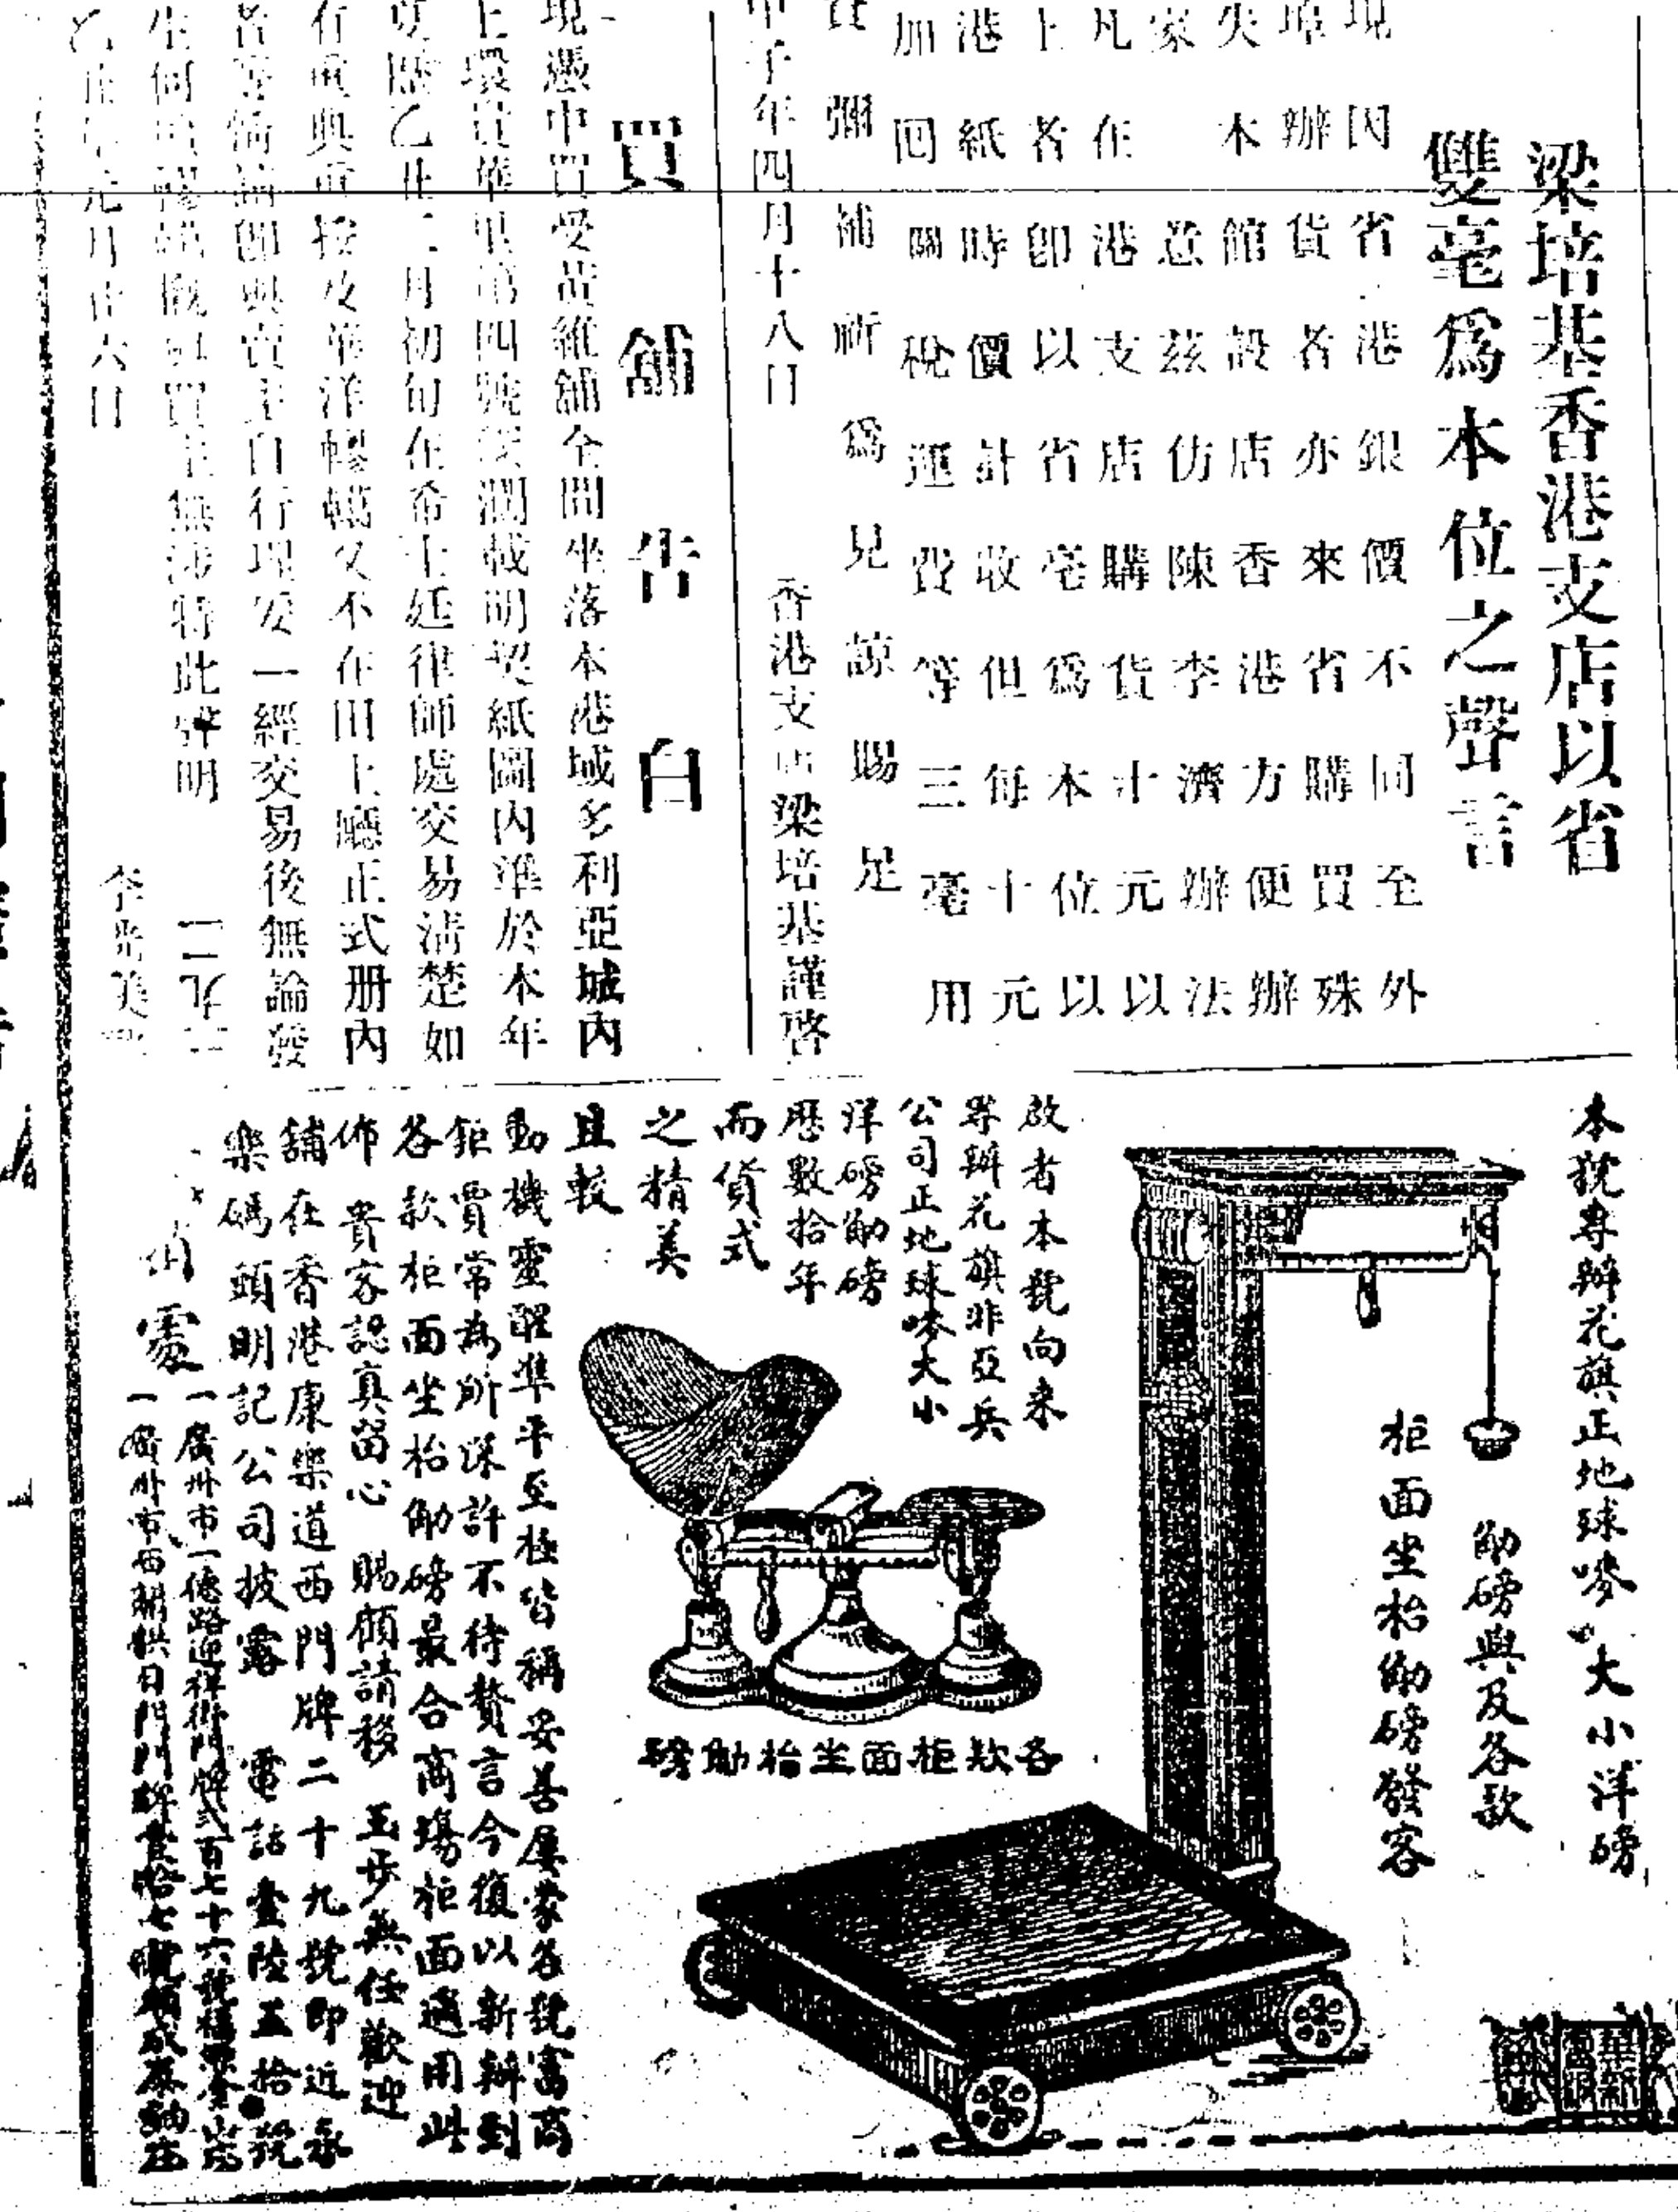 梁培基香港支店以省
雙毫爲本位之聲言
現因省港銀價不同至外
埠辦貨者亦來省購買殊
失本館設店香港方便辦
家意茲仿陳李濟辦法
凡在港支店購貨十元以
上者卽以省毫爲本位以
港紙時價計收但每十元
加回關稅運費等三毫用
資彌補祈爲見諒賜足
甲子年四月十八日 香港支店梁培基謹啓
買舖告白
現憑中買受黃維舖全間坐落本港域多利亞城內
上環 華里第四號 載明契紙圖內準於本年
夏曆乙丑二月初旬在希士廷律師處交易淸楚如
有重典重按及華洋轇轕又不在田土廳正式册內
者 卽與賣主自行理妥一經交易後無論發
生何 轇轕槪與買主無涉特此聲明
乙丑年元月廿六日 李
本號專辦花旗正地球嘜大小洋磅
鋤磅與及各款
柜面坐枱鋤磅發客
啟者本號向來
專辦花旗非亞兵
公司正地球嘜大小
洋磅鋤磅
歷數拾年
而貨式
之精美
且較
動機靈醒準平至極皆稱妥善屢蒙各號富商
鉅賈常為所深許不待贅言今復以新辦到
各款柜面坐枱鋤磅最合商塲柜面適用此
佈 貴客認真留心 賜顧請移 玉步無任歡迎
舖在香港康樂道西門牌二十九號即近永
樂碼頭明記公司披露 電話壹陸五拾號
一廣州市一德路迎祥街門牌弍百七十六號
一廣州市西 門牌
各欵柜面坐枱鋤磅